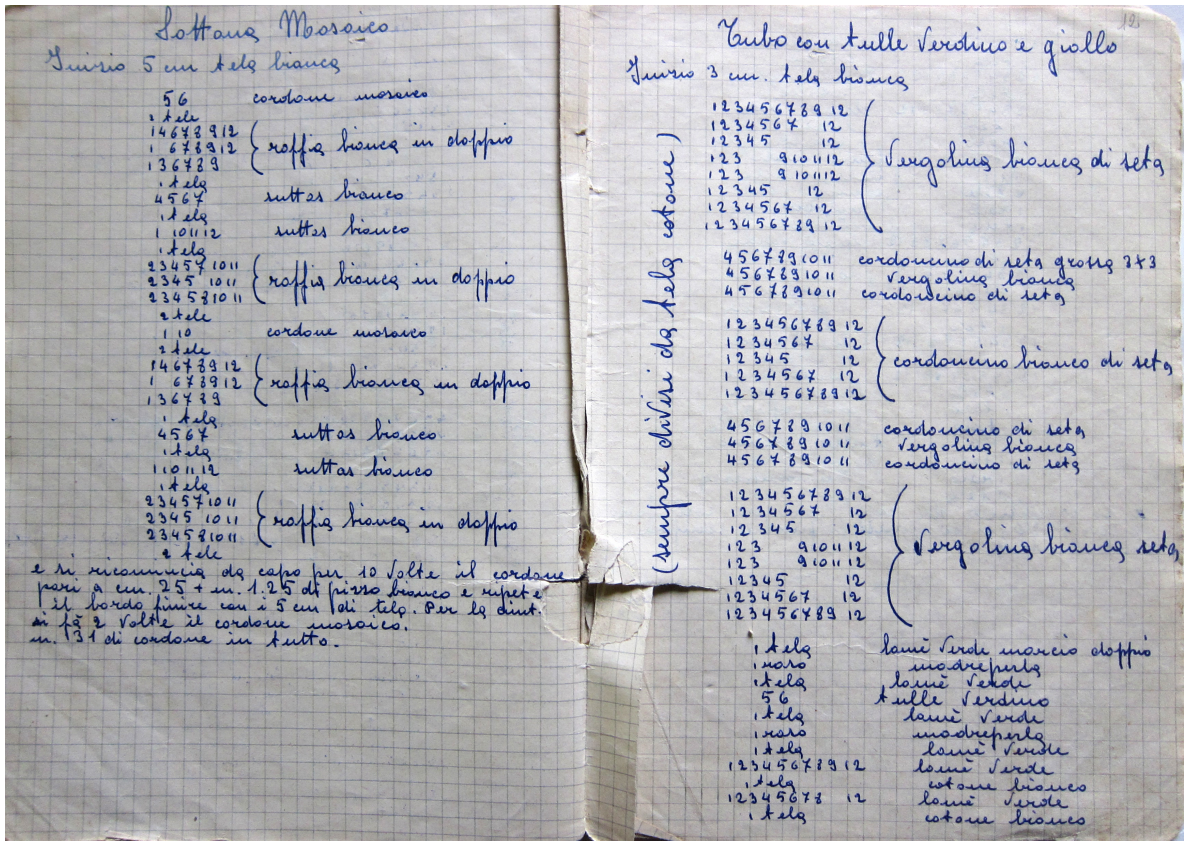 Sottana Mosaico
Inizio 5 cm tela bianca
56 cordone mosaico
2 tele
1 4 6 7 8 9 12
1 6 7 8 9 12 { raffia bianca in doppio
1 3 6 7 8 9
1 tela
4 5 6 7 suttas bianco
1 tela
1 10 11 12 suttas bianco
1 tela
2 3 4 5 7 10 11
2 3 4 5 10 11 { raffia bianca in doppio
2 3 4 5 8 10 11
2 tele
1 10 cordone mosaico
2 tele
1 4 6 7 8 9 12
1 6 7 8 9 12 { raffia bianca in doppio
1 3 6 7 8 9
1 tela
4 5 6 7 suttas bianco
1 tela
1 10 11 12 suttas bianco
1 tela
2 3 4 5 7 10 11
2 3 4 5 10 11 { raffia bianca in doppio
2 3 4 5 8 10 11
2 tele
e si ricomincia da capo per 10 volte il cordone
pari a cm. 25 + m. 1.25 di pizzo bianco e ripete
il bordo finire con i 5 cm di tela. Per la dint.
si fà 2 volte il cordone mosaico.
m. 31 di cordone in tutto.
12
Tubo con tulle verdino e giallo
Inizio 3 cm. tela bianca
(sempre divisi da tela cotone)
1 2 3 4 5 6 7 8 9 12
1 2 3 4 5 6 7 12
1 2 3 4 5 12
1 2 3 9 10 11 12 } Vergolina bianca di seta
1 2 3 9 10 11 12
1 2 3 4 5 12
1 2 3 4 5 6 7 12
1 2 3 4 5 6 7 8 9 12
4 5 6 7 8 9 10 11 cordoncino di seta grossa 3+3
4 5 6 7 8 9 10 11 Vergolina bianca
4 5 6 7 8 9 10 11 cordoncino di seta
1 2 3 4 5 6 7 8 9 12
1 2 3 4 5 6 7 12
1 2 3 4 5 12 { cordoncino bianco di seta
1 2 3 4 5 6 7 12
1 2 3 4 5 6 7 8 9 12
4 5 6 7 8 9 10 11 cordoncino di seta
4 5 6 7 8 9 10 11 Vergolina bianca
4 5 6 7 8 9 10 11 cordoncino di seta
1 2 3 4 5 6 7 8 9 12
1 2 3 4 5 6 7 12
1 2 3 4 5 12
1 2 3 9 10 11 12 { Vergolina bianca seta
1 2 3 9 10 11 12
1 2 3 4 5 12
1 2 3 4 5 6 7 12
1 2 3 4 5 6 7 8 9 12
1 tela lamè verde marcio doppio
1 raso madreperla
1 tela lamè verde
56 tulle verdino
1 tela lamè verde
1 raso madreperla
1 tela lamè verde
1 2 3 4 5 6 7 8 9 12 lamè verde
1 tela cotone bianco
1 2 3 4 5 6 7 8 12 lamè verde
1 tela cotone bianco